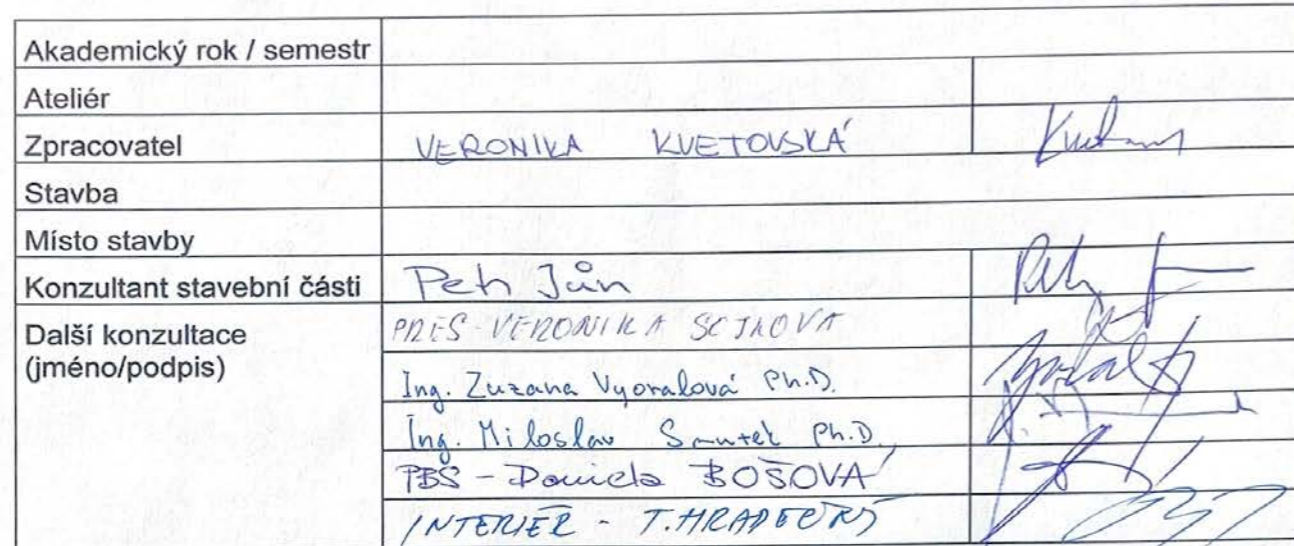 Akademický rok / semestr
Ateliér
Zpracovatel VERONIKA KVETOVSKÁ
Stavba
Místo stavby
Konzultant stavební části Petr Jůn
Další konzultace PRES - VERONIKA SOJKOVA
(jméno/podpis)
Ing. Zuzana Vyoralová Ph.D.
Ing. Miloslav Smutek Ph.D.
PBS - Daniela BOŠOVÁ
INTERIÉR - T. HRADEČNÝ